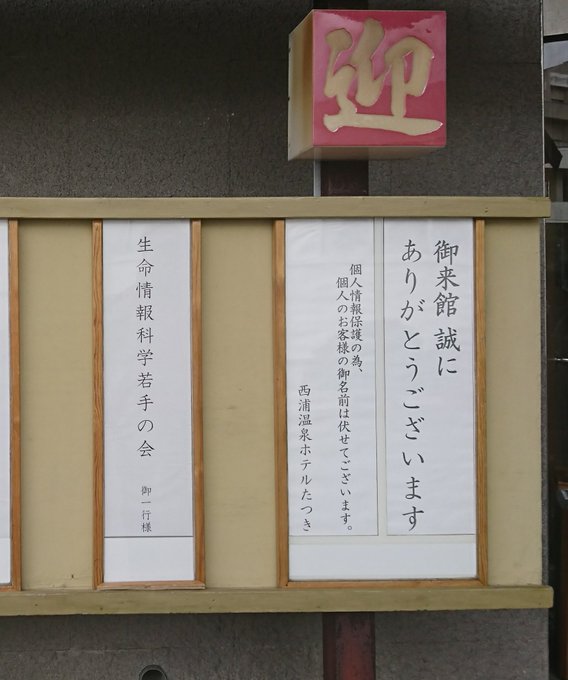 迎
御来館 誠に
ありがとうございます
個人情報保護の為、
個人のお客様の御名前は伏せてございます。
西浦温泉ホテルたつき
生命情報科学若手の会 御一行様